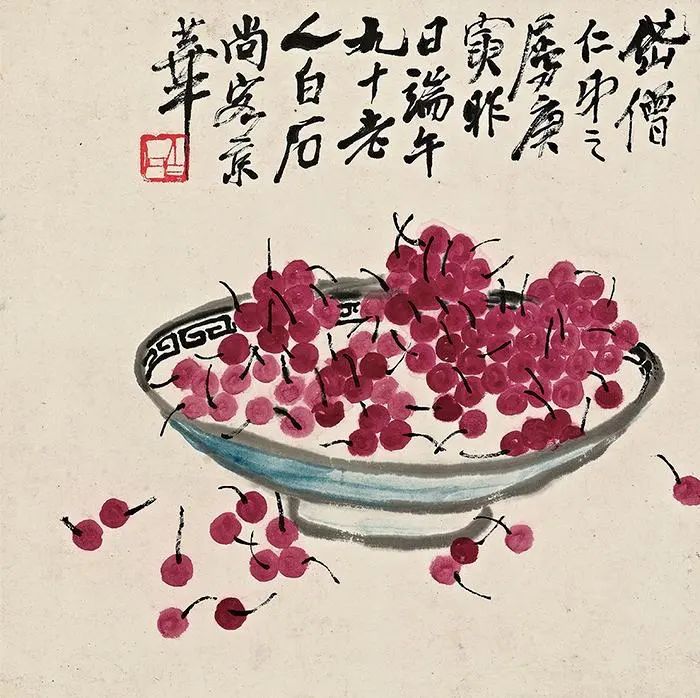 岱僧
仁弟之
属庚
寅昨
日端午
九十老
人白石
尚客京
華